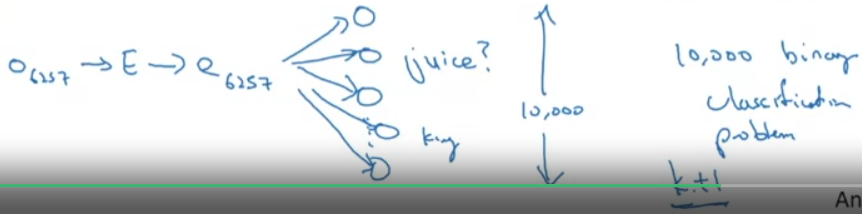 o6257 → E → e6257
juice?
king
10,000
10,000 binary
classification
problem
k+1
An